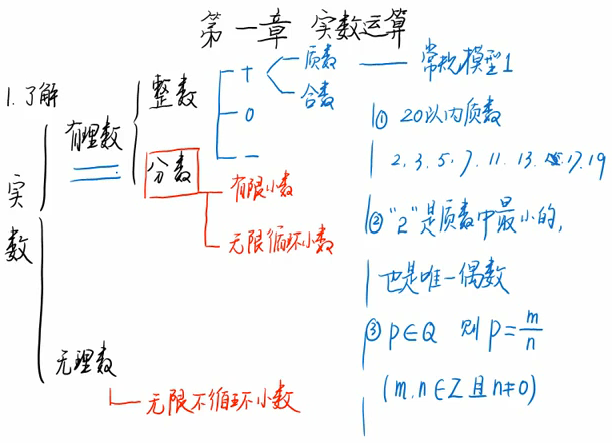 第一章 实数运算
1.了解
实数
有理数
整数
+
质数
合数
0
-
分数
有限小数
无限循环小数
无理数
无限不循环小数
常规模型1
① 20以内质数
2.3.5.7.11.13.17.19
②"2"是质数中最小的,
也是唯一偶数
③ p∈Q 则 p=m/n
(m.n∈Z且n≠0)